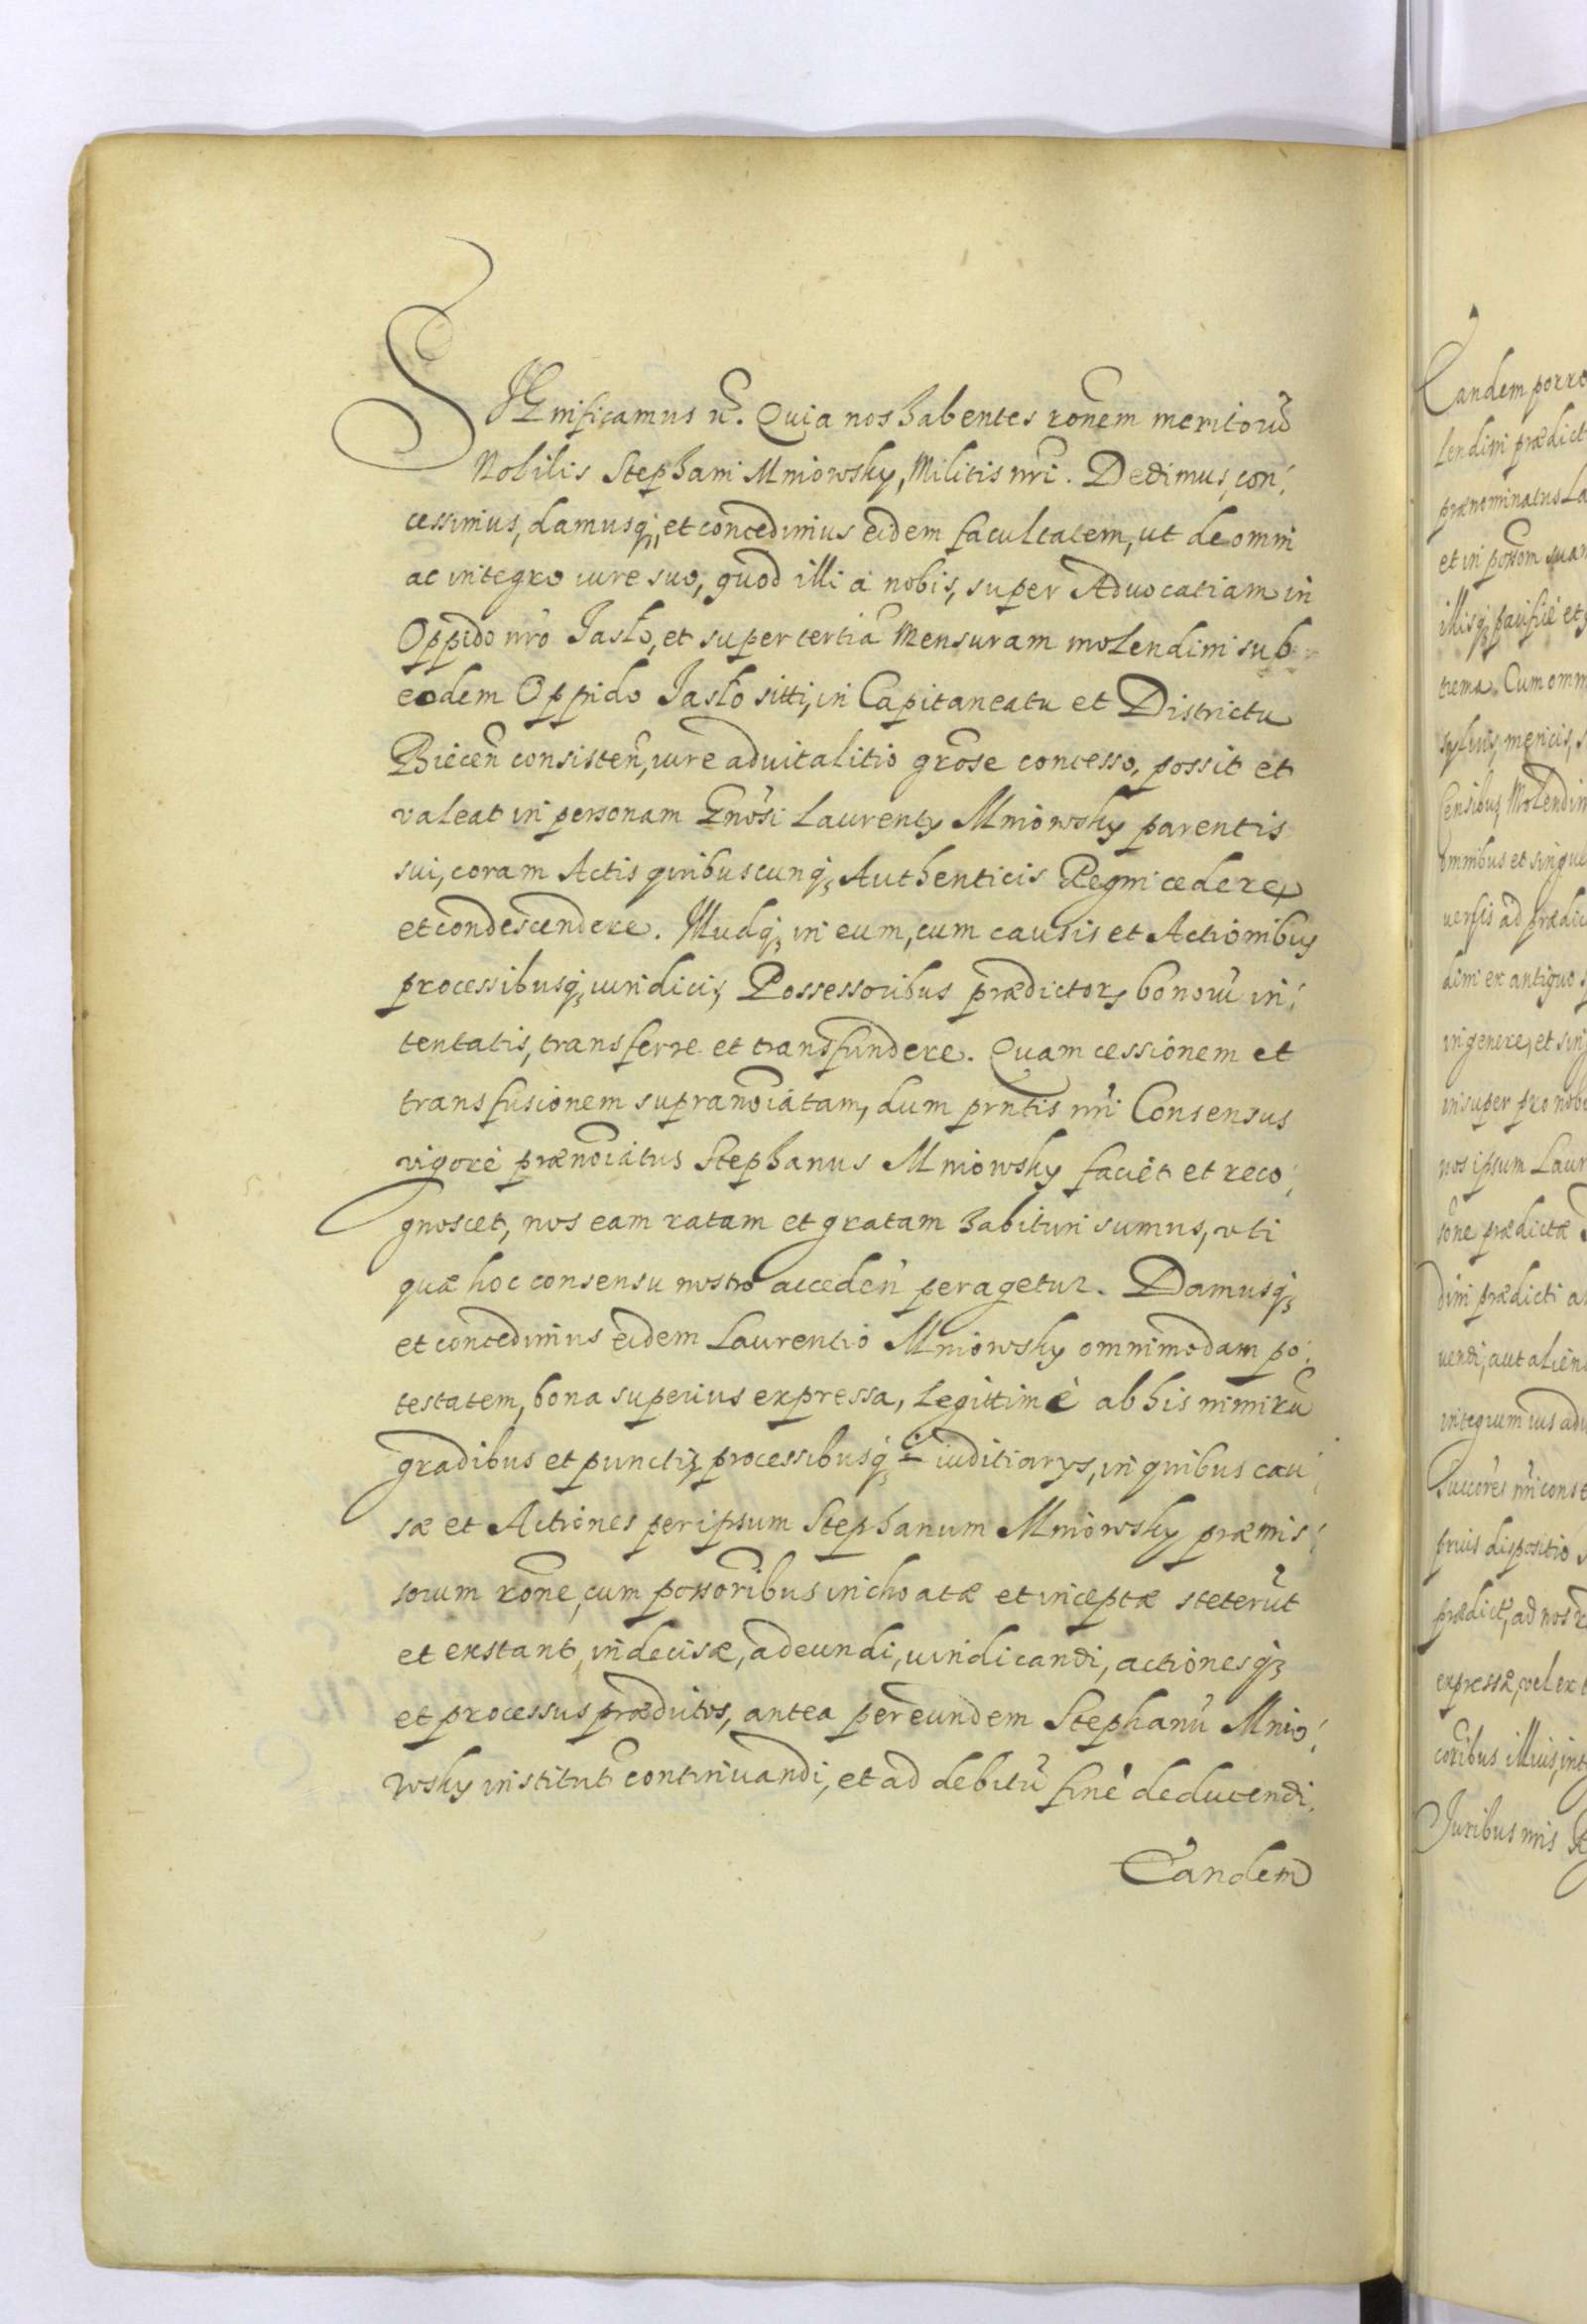 SIGnificamus n̄. Quia nos habentes rōnem meritorū
Nobilis Stephani Mniowsky, Militis nr̄i. Dedimus, con:
cessimus, damusq₃, et concedimus eidem facultatem, ut de omni
ac integro iure suo, quod illi á nobis, super Advocatiam in
Oppido nr̄o Jasło, et super tertiā Mensuram molendini sub
eodem Oppido Jasło sitti, in Capitaneatu et Districtu
Biecen̄ consisten̄, iure advitalitio gr̄ose concesso, possit et
valeat in personam Gn̄osi Laurenty Mniowsky parentis
sui, coram Actis quibuscunq₃ Authenticis Regni cedere
et condescendere. Illudq₃ in eum, cum causis et Actionibus
processibusq₃ iuridicis, Possessoribus prædictor₃ bonorū in:
tentatis, transferre et transfundere. Quam cessionem et
transfusionem supranōiatam, dum prn̄tis nr̄i Consensus
vigore prænōiatus Stephanus Mniowsky faciet et reco:
gnoscet, nos eam ratam et gratam habituri sumus, uti
quæ hoc consensu nostro acceden̄ peragetur. Damusq₃
et concedimus eidem Laurentio Mniowsky omnimodam po:
testatem, bona superius expressa, legittimè ab his nimirū
gradibus et punctis, processibusq₃ iuditiarys, in quibus cau:
sæ et Actiones per ipsum Stephanum Mniowsky præmis:
sorum rōne, cum possōribus inchoatæ et inceptæ steterūt
et exstant, indecisæ, adeundi, vindicandi, actionesq₃
et processus præduitos, antea per eundem Stephanū Mnio:
wsky institut̄ continuandi, et ad debitū finē deducendi.
Eandem
Eandem porro
lendini prædict
prænominatus La
et in posōrom suam
illisq₃ pacifice et
trema. Cum omn
sylvis, mericis, s
Censibus, Molendin
omnibus et singul
versis ad prædic
dini ex antiquo s
in genere, et sin
insuper pro nobi
nos ipsum Laur
sōne prædictæ
dini prædicti a
vendi, aut alien
integrum ius adv
Succōres nr̄i conse
prius dispositio
prædict̄, ad nos r
expressa, vel ex
cōribus illius, int
Juribus nr̄is R